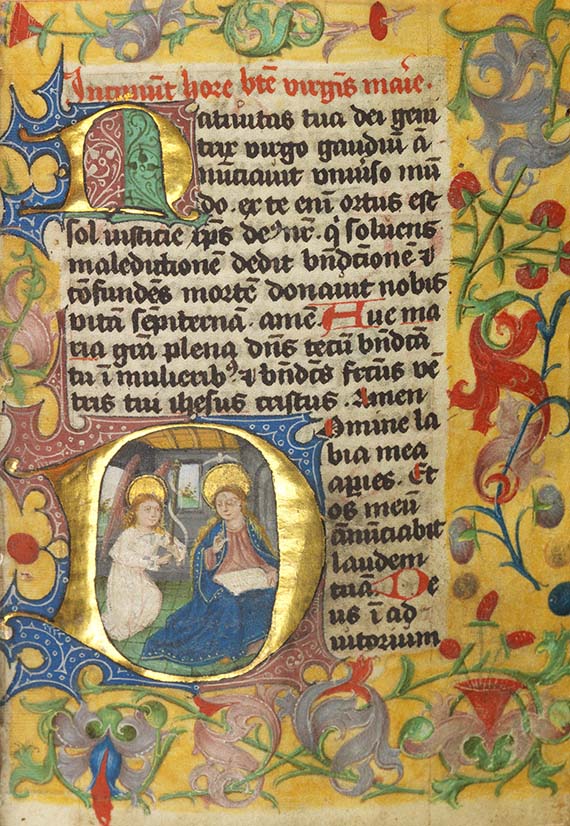 Incipiūt hore bt̄e virgīs marie.
Natiuitas tua dei geni
trix virgo gaudiū ā
nūciauit vniuṡo mū
do. ex te eni ortus est
sol iusticie xp̄s de⁹ nr̄. q̇ soluens
maledictionē dedit bn̄dictionē ⁊
cōfundēs mortē donauit nobis
vitā sēpiternā. amē. Aue ma
ria grā plena dn̄s tecū bn̄dcā
tu ī mulierib⁹ ⁊ bn̄dcūs fctus vē
tris tui ihesus cristus. Amen
Domine la
bia mea
aperies. Et
os meū
ānūciabit
laudem
tuā. De
us ī ad
iutorium